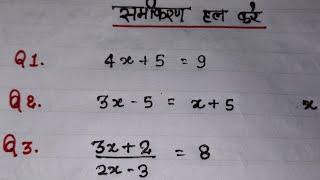 समीकरण हल करे
Q1. 4x + 5 = 9
Q2. 3x - 5 = x + 5 x
Q3. 3x + 2 = 8
2x - 3